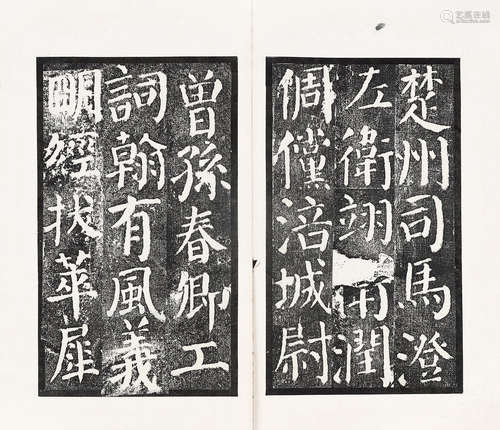 楚州司馬澄
左衛翊
潤
倜儻涪城尉
曾孫春卿工
詞翰有風義
明經拔萃犀